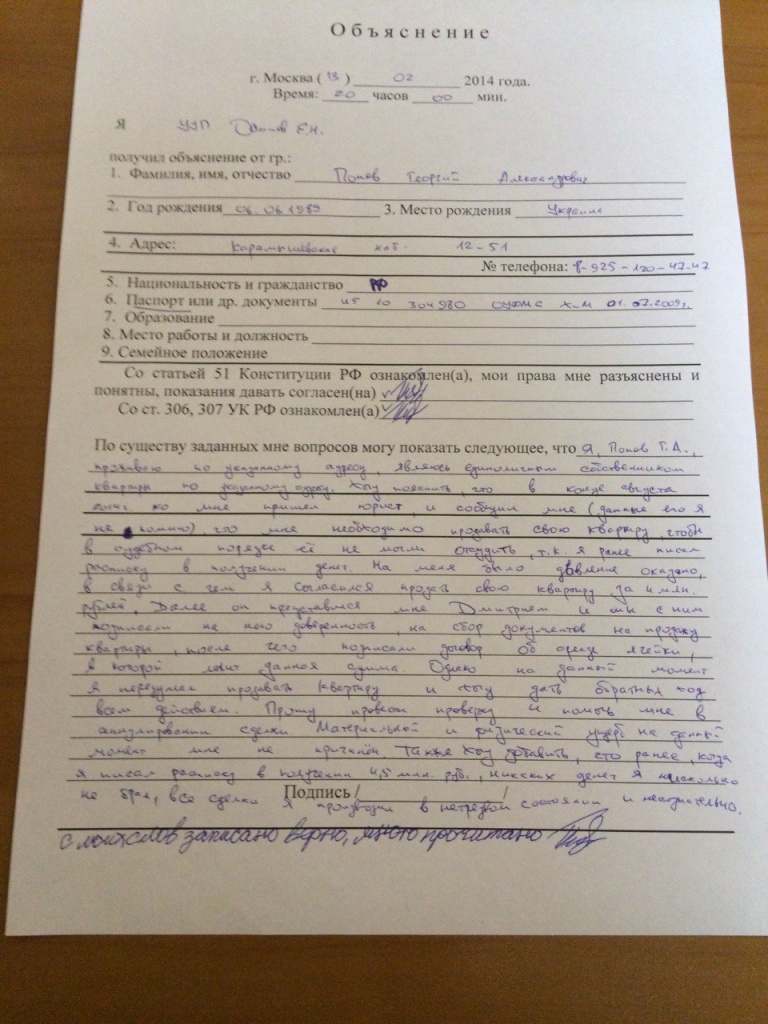 Объяснение
г. Москва ( 13 ) 02 2014 года.
Время: 20 часов 00 мин.
Я УУП Е.Н.
получил объяснение от гр.:
1. Фамилия, имя, отчество Попов Георгий Александрович
2. Год рождения 06.06.1989 3. Место рождения Украина
4. Адрес: Карамышевская наб. 12-51
№ телефона: 8-925-120-47-47
5. Национальность и гражданство РФ
6. Паспорт или др. документы 45 10 304980 ОУФМС Х-М 01.07.2009г.
7. Образование
8. Место работы и должность
9. Семейное положение
Со статьей 51 Конституции РФ ознакомлен(а), мои права мне разъяснены и
понятны, показания давать согласен(на)
Со ст. 306, 307 УК РФ ознакомлен(а)
По существу заданных мне вопросов могу показать следующее, что Я, Попов Г.А.,
проживаю по указанному адресу, являюсь единоличным собственником
квартиры по указанному адресу. Хочу пояснить, что в конце августа
ко мне пришел юрист, и сообщил мне (данные его я
не помню) что мне необходимо продавать свою квартиру, чтобы
в судебном порядке её не могли отсудить, т.к. я ранее писал
расписку в получении денег. На меня было давление оказано,
в связи с чем я согласился продать свою квартиру за 4 млн.
рублей, Далее он представился мне Дмитрием и мы с ним
подписали на него доверенность, на сбор документов на продажу
квартиры, после чего подписали договор об аренде ячейки,
в которой данная сумма. Однако на данный момент
я передумал продавать квартиру и хочу дать обратный ход
всем действием. Прошу провести проверку и помочь мне в
аннулировании сделки Материальной и физический ущерб на данный
момент мне не причинён. Также хочу добавить, что ранее, когда
я писал расписку в получении 4,5 млн. руб., никаких денег я нисколько
не брал, все сделки я производил в нетрезвом состоянии и несознательно.
Подпись / /
с моих слов записано верно, мною прочитано